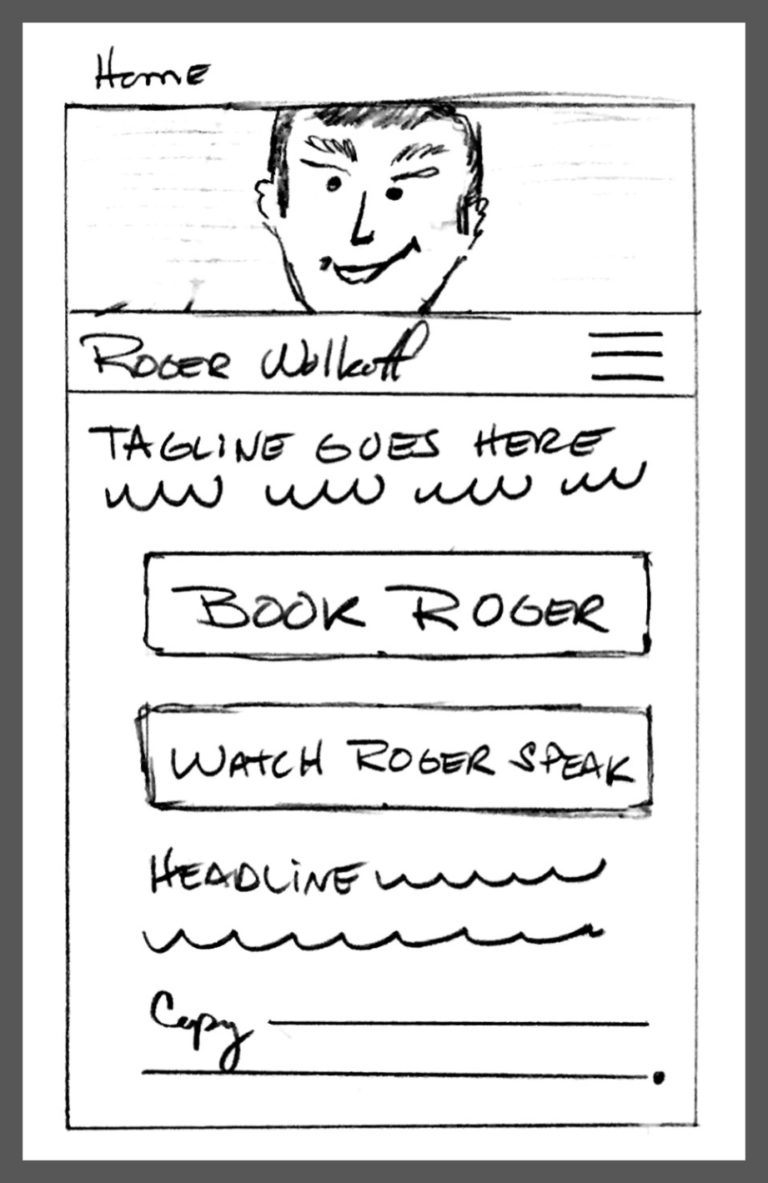 Home
ROGER
TAGLINE GOES HERE
BOOK ROGER
WATCH ROGER SPEAK
HEADLINE
Copy